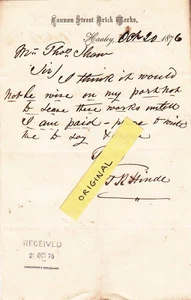 Cannon Street Brick Works.
Hanley, Oct 20 1876
Mr Thos Shaw
Sir
I think it would
not be wise on my part not
to leave these works untill
I am paid -
to day
T R Hinde
ORIGINAL
RECEIVED
21 OCT 76